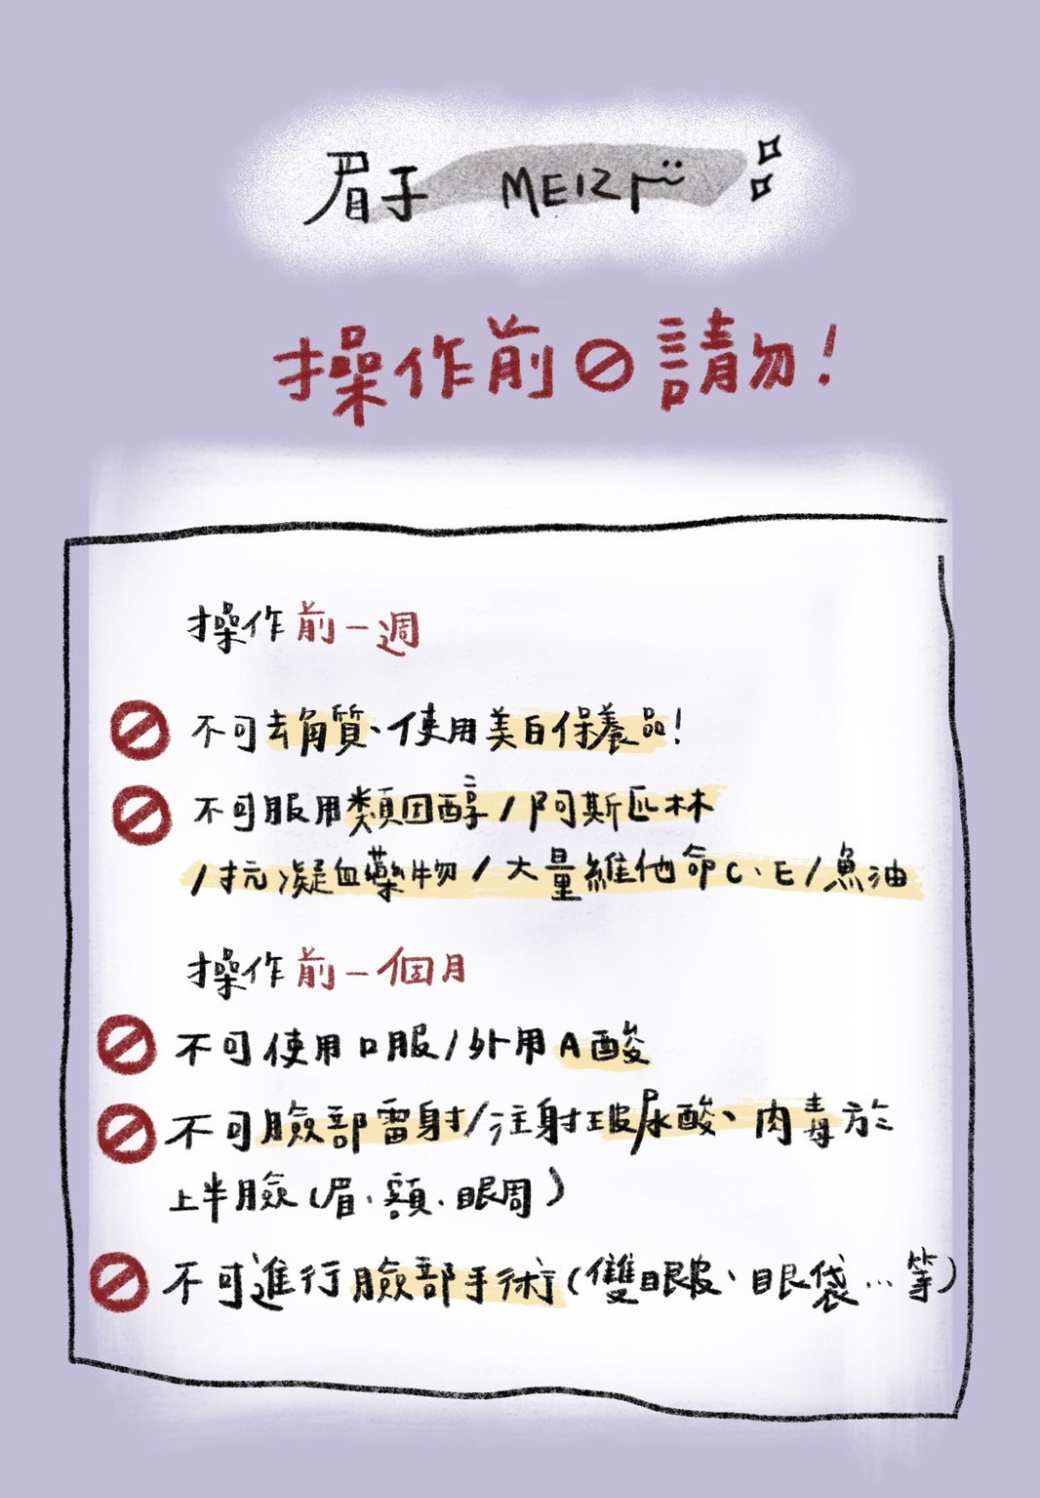 眉子 MEIZI
操作前🚫請勿!
操作前一週
不可去角質、使用美白保養品!
不可服用類固醇/阿斯匹林
/抗凝血藥物/大量維他命C、E/魚油
操作前一個月
不可使用口服/外用A酸
不可臉部雷射/注射玻尿酸、肉毒於
上半臉(眉、額、眼周)
不可進行臉部手術(雙眼皮、眼袋...等)